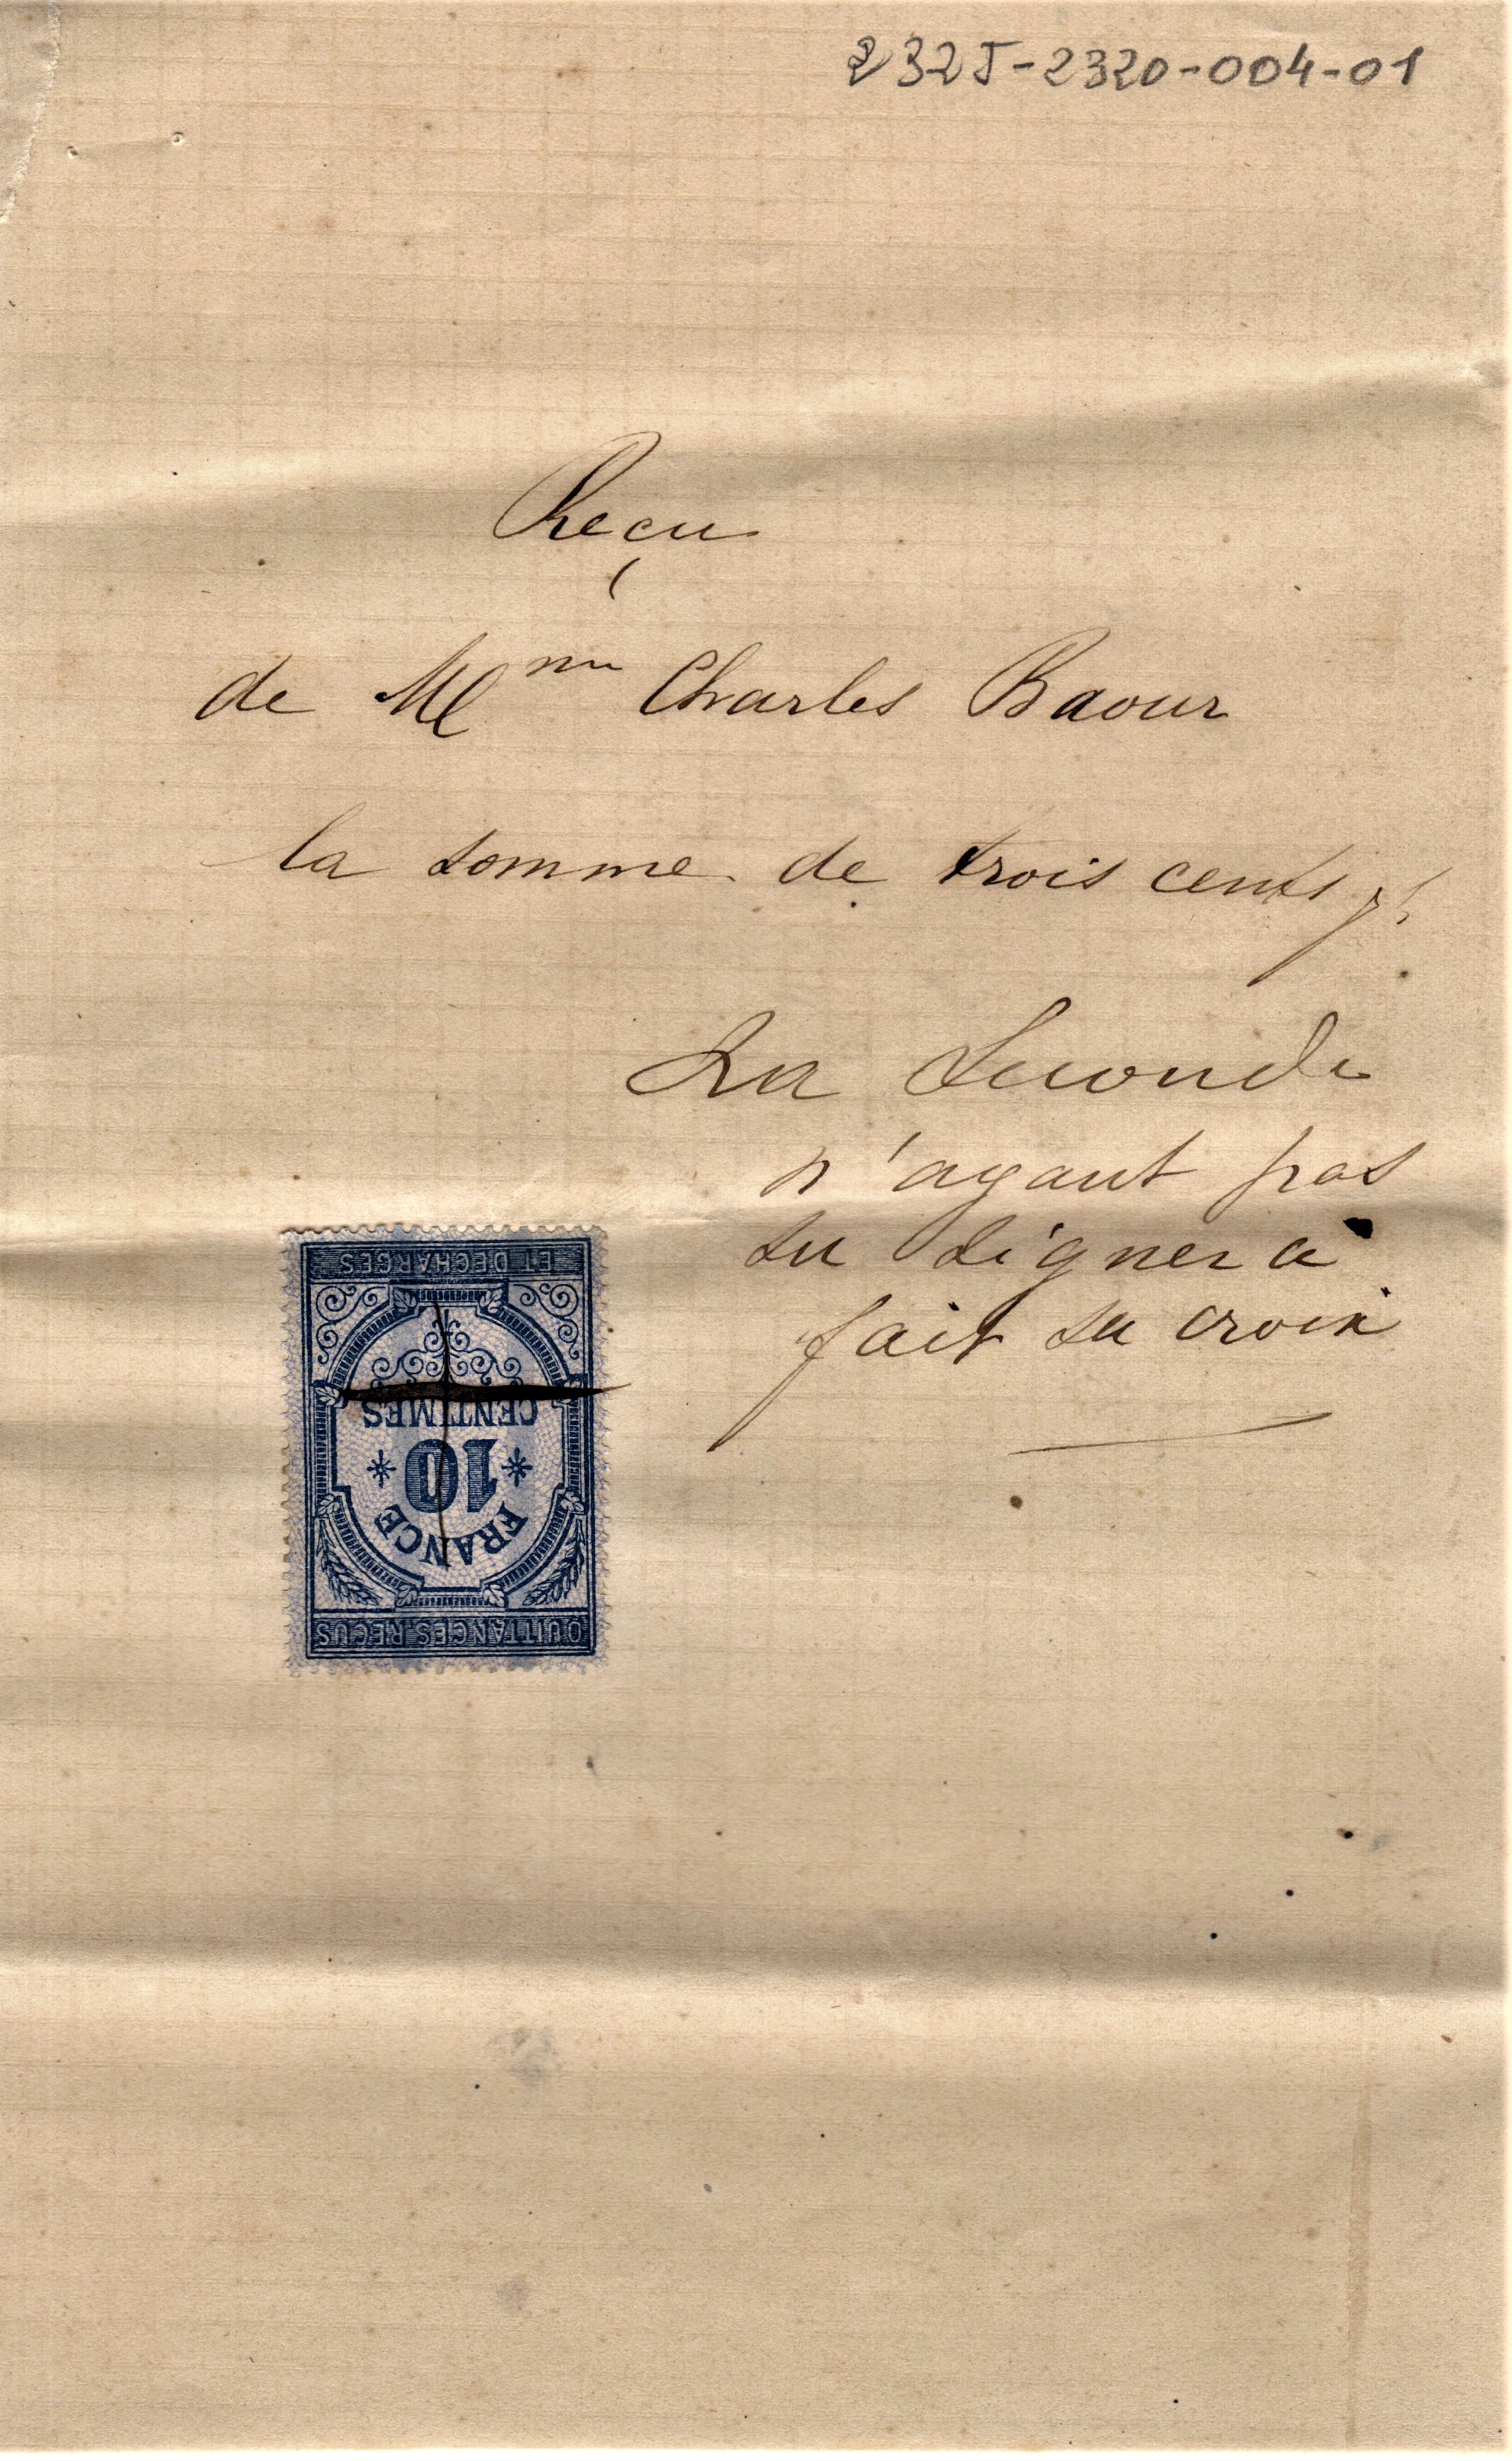 232J-2320-004-01
Reçu
de Mme Charles Baour
la somme de trois cents f.
La Seconde
n'ayant pas
su signer a
fait sa croix
ET DÉCHARGES
CENTIMES
10
FRANCE
QUITTANCES, REÇUS